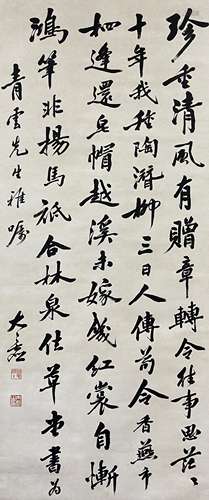 珍重清風有贈章轉令往事思茫〻
十年我種陶潛柳三日人傳荀令香燕市
相逢還皂帽越溪未嫁成紅裳自慚
鴻筆非揚馬祇合林泉住草堂書為
青雲先生雅囑 大